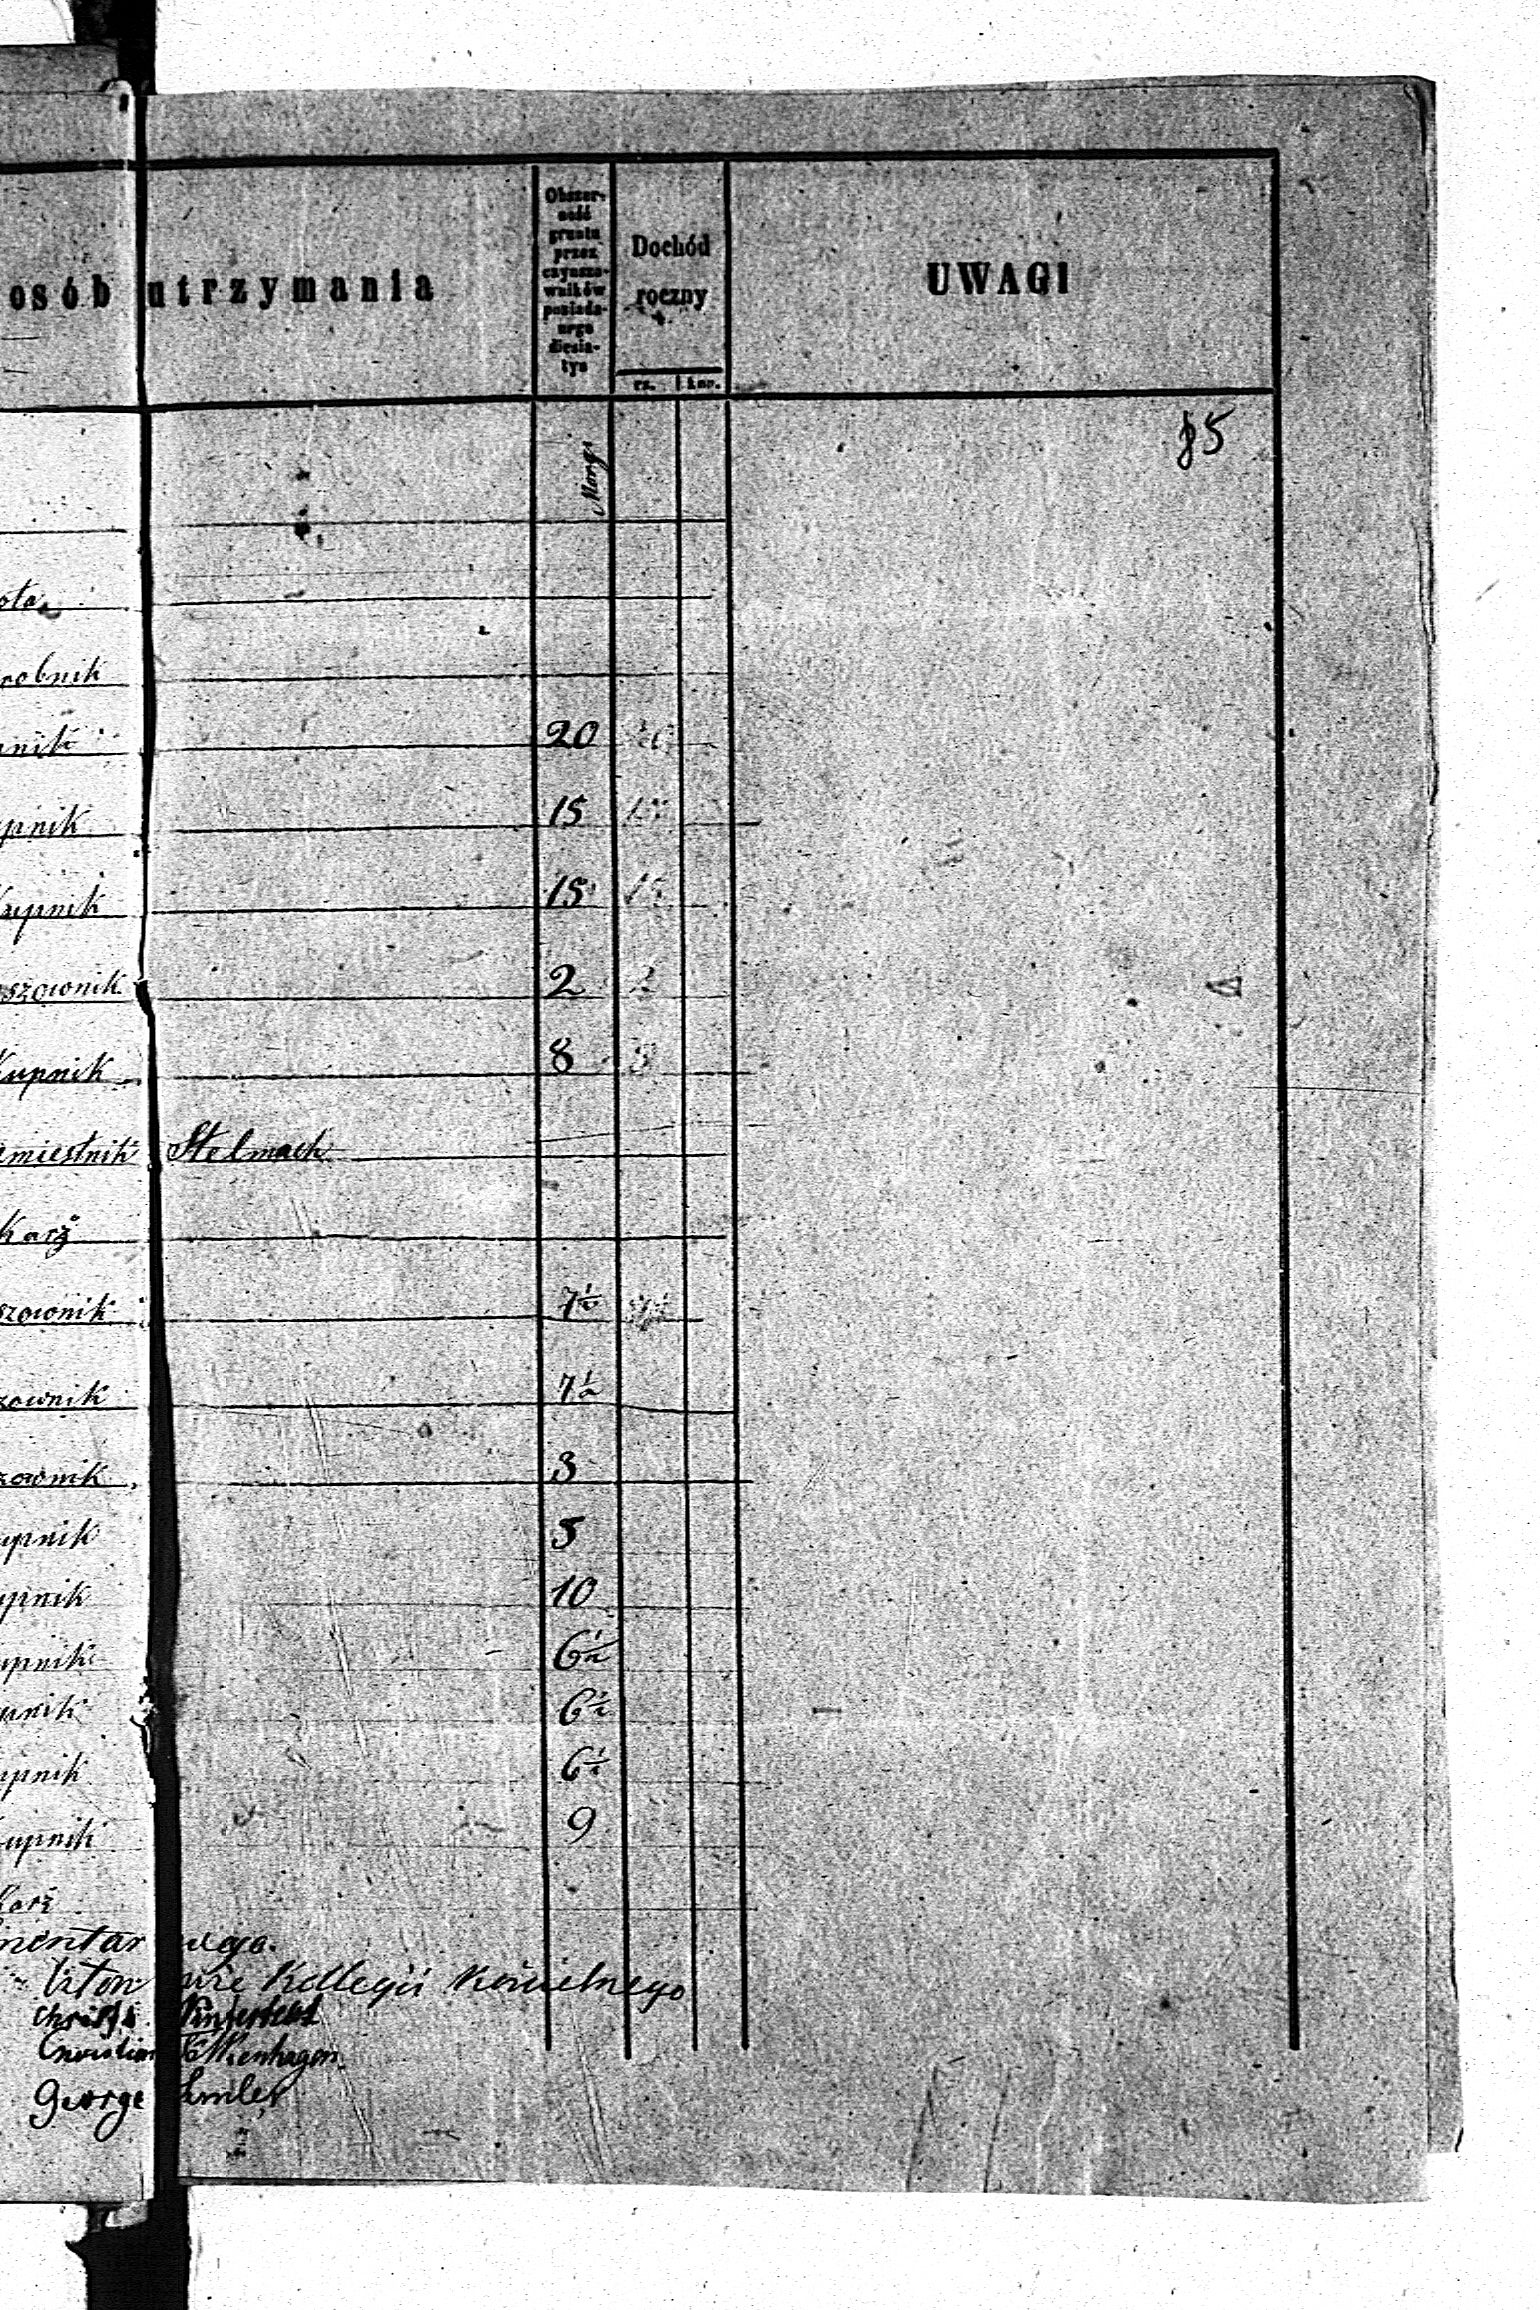 osób utrzymania
Obszer-
ność
gruntu
przez
czynszo-
wników
posiada-
nego
diesia-
tyn
Dochód
roczny
rs. kop.
UWAGI
85
Morgi
ota
robnik
nik 20 20
upnik 15 15
kupnik 15 15
szownik 2 2
Kupnik 8 8
emieślnik Stelmach
karz
szownik 7½
zownik 7½
zownik 3
upnik 5
upnik 10
upnik 6½
upnik 6½
upnik 6½
kupnik 9
karz
mentarnego.
Członkowie Kollegii Kościelnego
Christian
George Semler